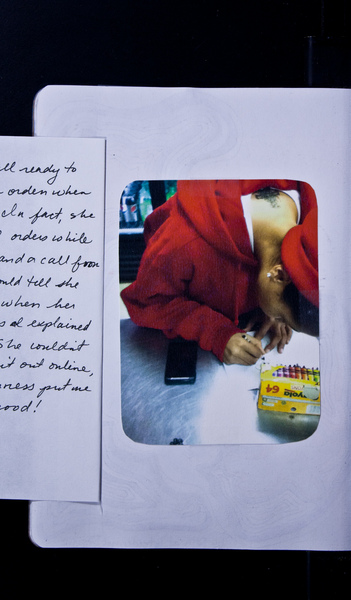 all ready to
orders when
In fact, she
orders while
and a call from
would tell she
when her
as I explained
She wouldn't
it out online,
ness put me
mood!
yola
64